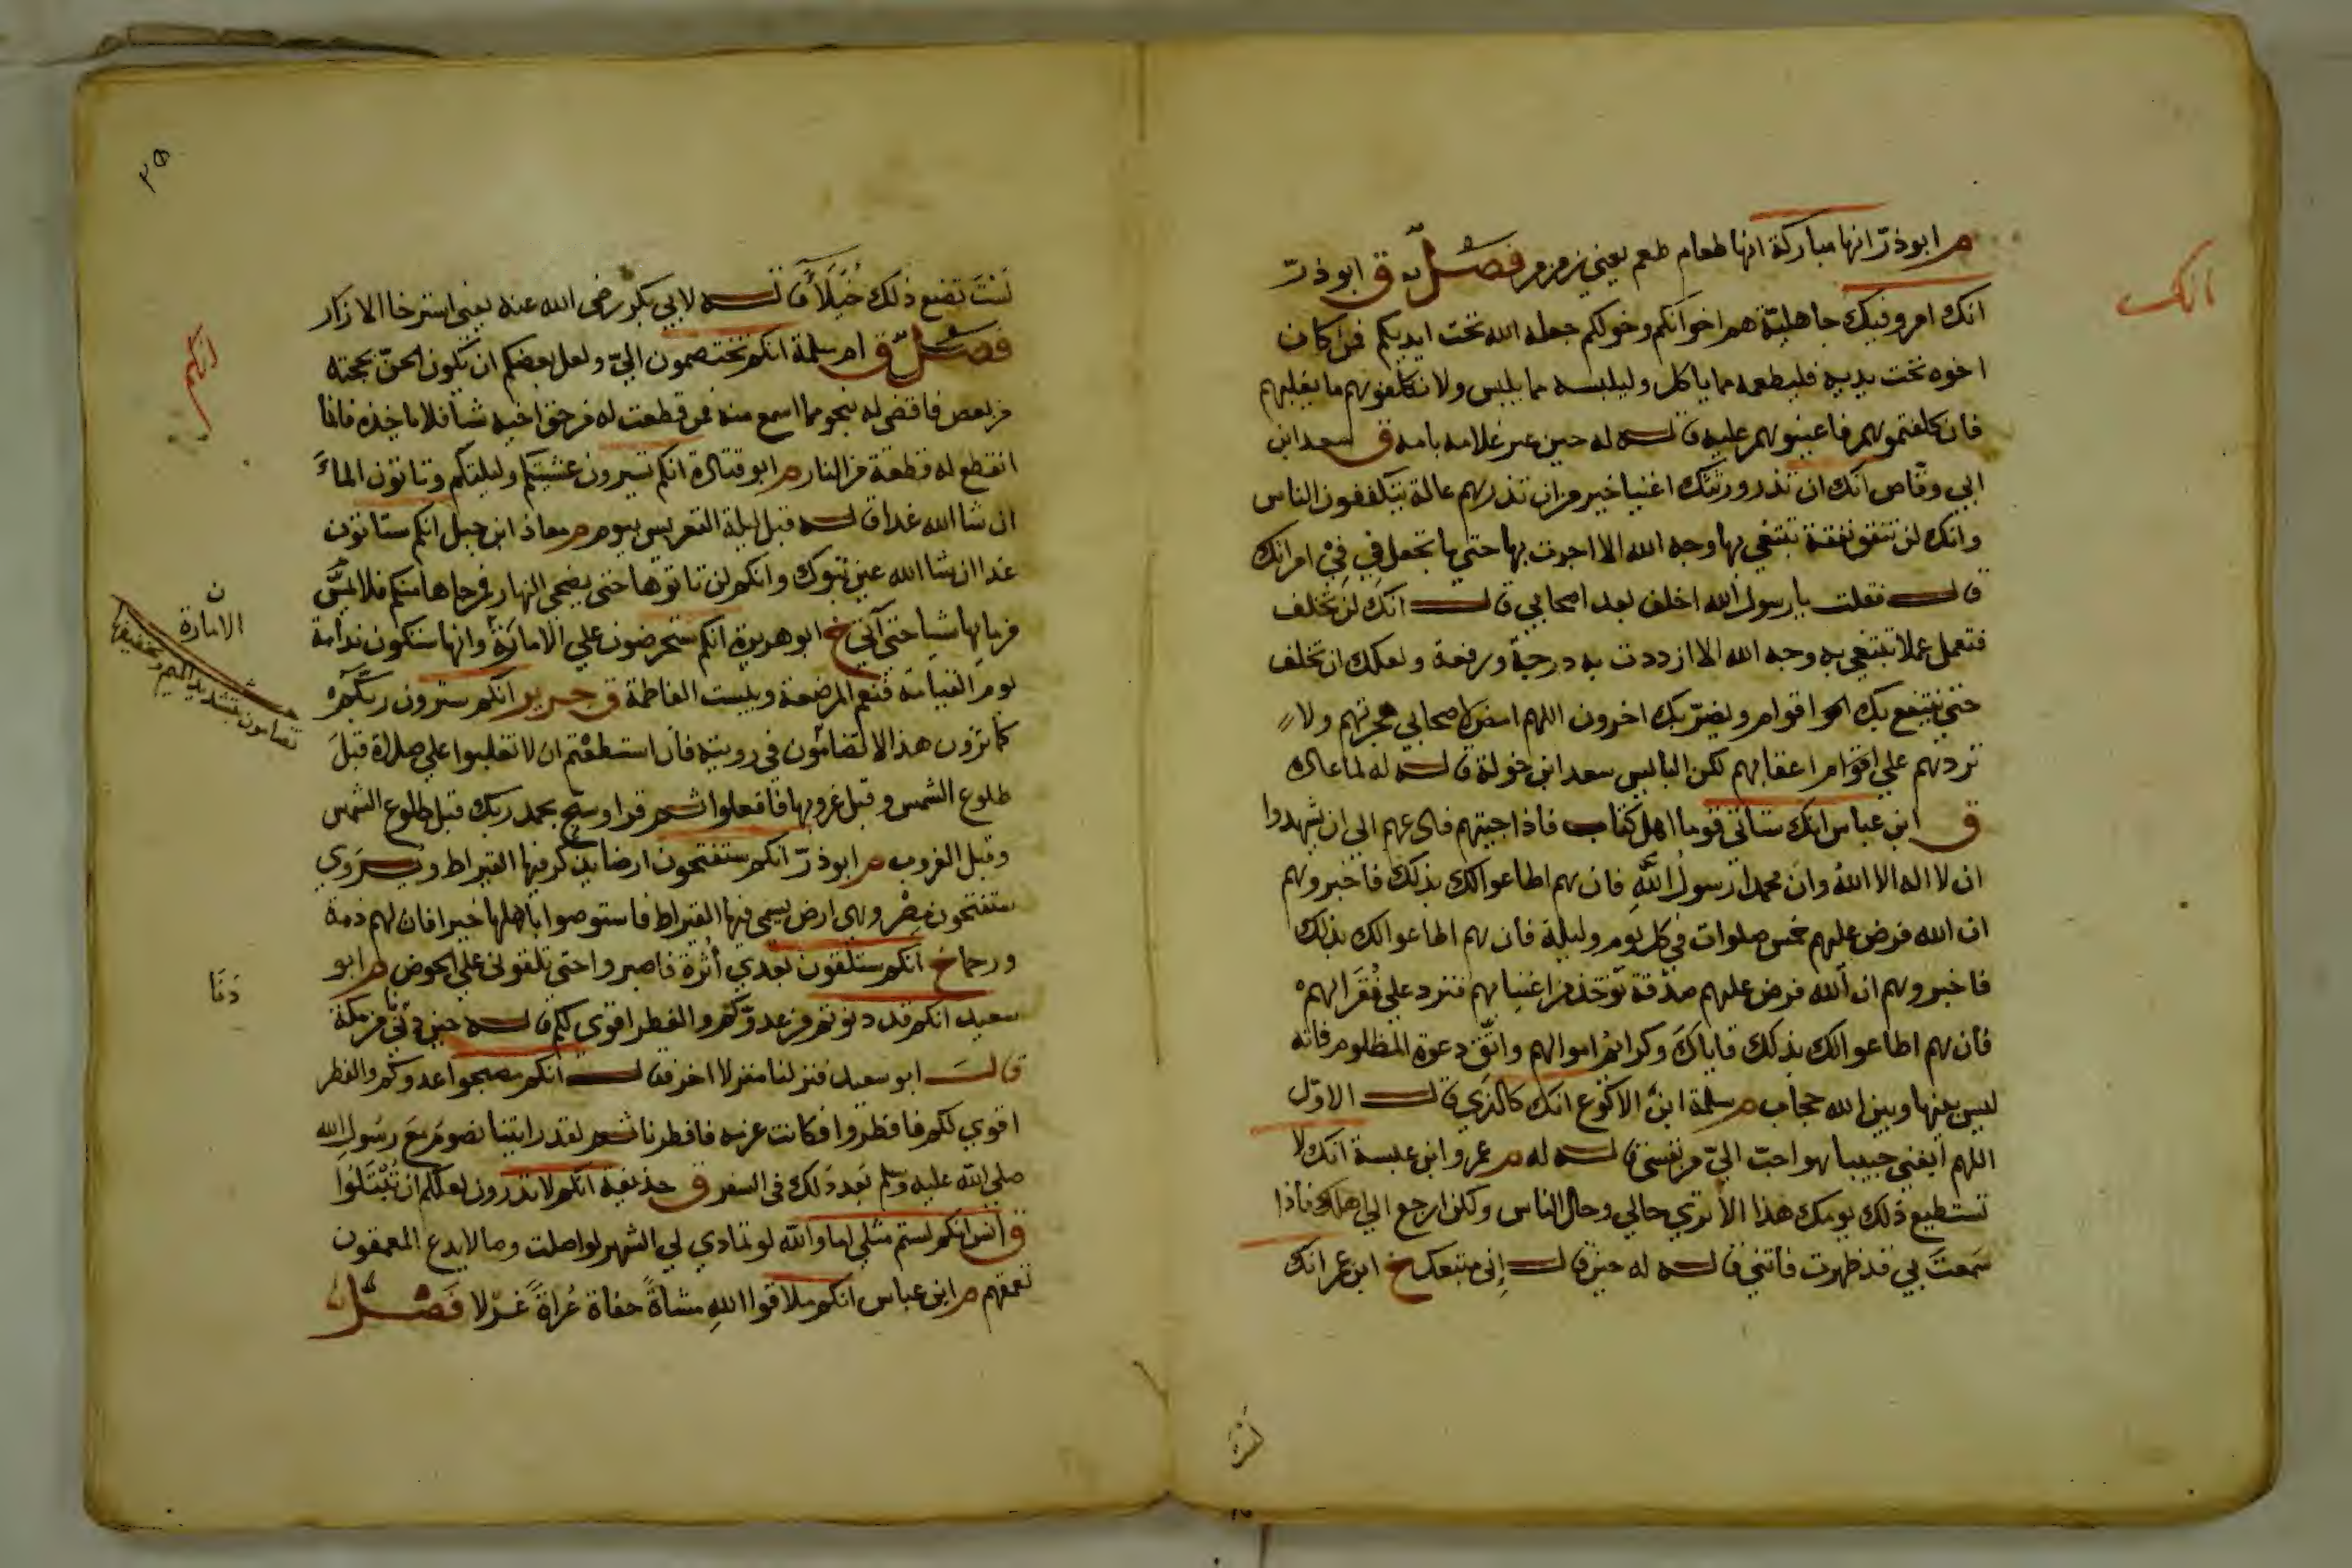 م ابوذرّ انها مباركة انها طعام طعم يعني زمزم فصل ق ابو ذرّ
انك امرو فيك جاهليّة هم اخوانكم وخولكم جعله الله تحت ايديكم فمن كان
اخوه تحت يديه فليطعمه مما ياكل وليلبسه مما يلبس ولا تكلفوهم ما يغلبهم
فان كلفتموهم فاعينوهم عليه قاله له حين عير غلامه بامه ق سعد ابن
ابي وقّاص انك ان تذر ورثتك اغنيا خير من ان تذرهم عالة يتكففون الناس
وانك لن تنفق نفقة تبتغي بها وجه الله الا اجرت بها حتي ما تجعل في فيْ امراتك
قال فقلت يا رسول الله اخلف بعد اصحابي قال انك لن تخلف
فتعمل عملا تبتغي به وجه الله الا ازددت به درجة ورفعة ولعلك ان تخلف
حتي ينتفع بك اقوام ويضرّ بك اخرون اللهم امض لاصحابي هجرتهم ولا
تردهم علي اعقابهم لكن البايس سعد ابن خولة قاله له لما عاده
ق ابن عباس انك ستاتي قوما اهل كتاب فاذا جيتهم فادعهم الي ان يشهدوا
ان لا اله الا اللهُ وانّ محمدا رسولُ اللهِ فان هم اطاعوا لك بذلك فاخبرهم
ان الله فرض عليهم خمس صلوات في كل يوم وليلة فان هم اطاعوا لك بذلك
فاخبروهم ان الله فرض عليهم صدقة توخذ من اغنيايهم فترد علي فُقَرَايهم
فان هم اطاعوا لك بذلك فاياكَ وكرايم اموالهم واتّقِ دعوة المظلوم فانه
ليس بينها وبين الله حجاب م سلمة ابن الاكوع انك كالذي قال الاوّل
اللهم ابغني حبيبا هو احبّ اليّ من نفسي قاله له م عمرو ابن عبسة انك لا
تستطيع ذلك يومك هذا الا تري حالي وحال الناس ولكن ارجع الي اهلك فاذا
سَمعتَ بي قد ظهرت فاتني قاله له حين قال اِني متبعك خ ابن عمر انك
لستَ
انك
٣٥
لَستَ تصنع ذلك خُيَلَاً قاله لابي بكر رضي الله عنه يعني استرخا الازار
فصل ق ام سلمة انكم تختصمون اليّ ولعل بعضكم ان يكون الحنّ بحجته
من بعض فاقضي له بنحو مما اسمع منه فمن قطعت له من حق اخيه شيا فلا ياخذه فانما
اقطع له قطعة من النار م ابو قتادة انكم تسيرون عشيّتكم وليلتكم وتاتون الماءَ
ان شا الله غدا قاله قبل ليلة التعريس بيوم م معاذ ابن جبل انكم ستاتون
غدا ان شا الله عين تبوك وانكم لن تاتوها حتي يضحي النهار فمن جاها منكم فلا يمسَّ
من مايها شيا حتي آتي خ ابو هريرة انكم ستحرصون علي الامارَة وانها ستكون ندامة
يوم القيامة فنعم المرضعة وبيست الفاطمة ق جرير انكم سترون ربّكم
كما ترون هذا لا تضامّون في رويته فان استطعتم ان لا تغلبوا علي صلاة قبلَ
طلوع الشمس وقبل غروبها فافعلوا ثم قرا وسبح بحمد ربك قبل طلوع الشمس
وقبل الغروب م ابوذرّ انكم ستفتحون ارضا يذكر فيها القيراط ويروي
ستفتحون مِصْر وهي ارض يسمي فيها القيراط فاستوصوا باهلها خيرا فان لهم ذمة
ورحما خ انكم ستلقون بعدي أثرة فاصبروا حتي تلقوني علي الحوض م ابو
سعيد انكم قد دنوتم من عدوّكم والفطر اقوي لكم قاله حين دني من مكة
قال ابو سعيد فنزلنا منزلا اخر فقال انكم مصبحوا عدوكم والفطر
اقوي لكم فافطروا فكانت عزمه فافطرنا ثم لقد رايتنا نصوم مَعَ رسُولِ الله
صلي الله عليه وسلم بَعد ذلك في السفر ق حذيفة انكم لا تدرون لعلكم ان تُبْتَلُوا
ق انس انكم لستم مثلي اما والله لو تمادي لي الشهر لواصلت وصالا يدع المتعمقون
تعمقهم م ابن عباس انكم ملاقوا اللهِ مشاةً حفاة عُراةً غرلا فَصْل
انكم
ن
الامارة
تضامون بتشديد الميم وتخفيفها
دَنَا